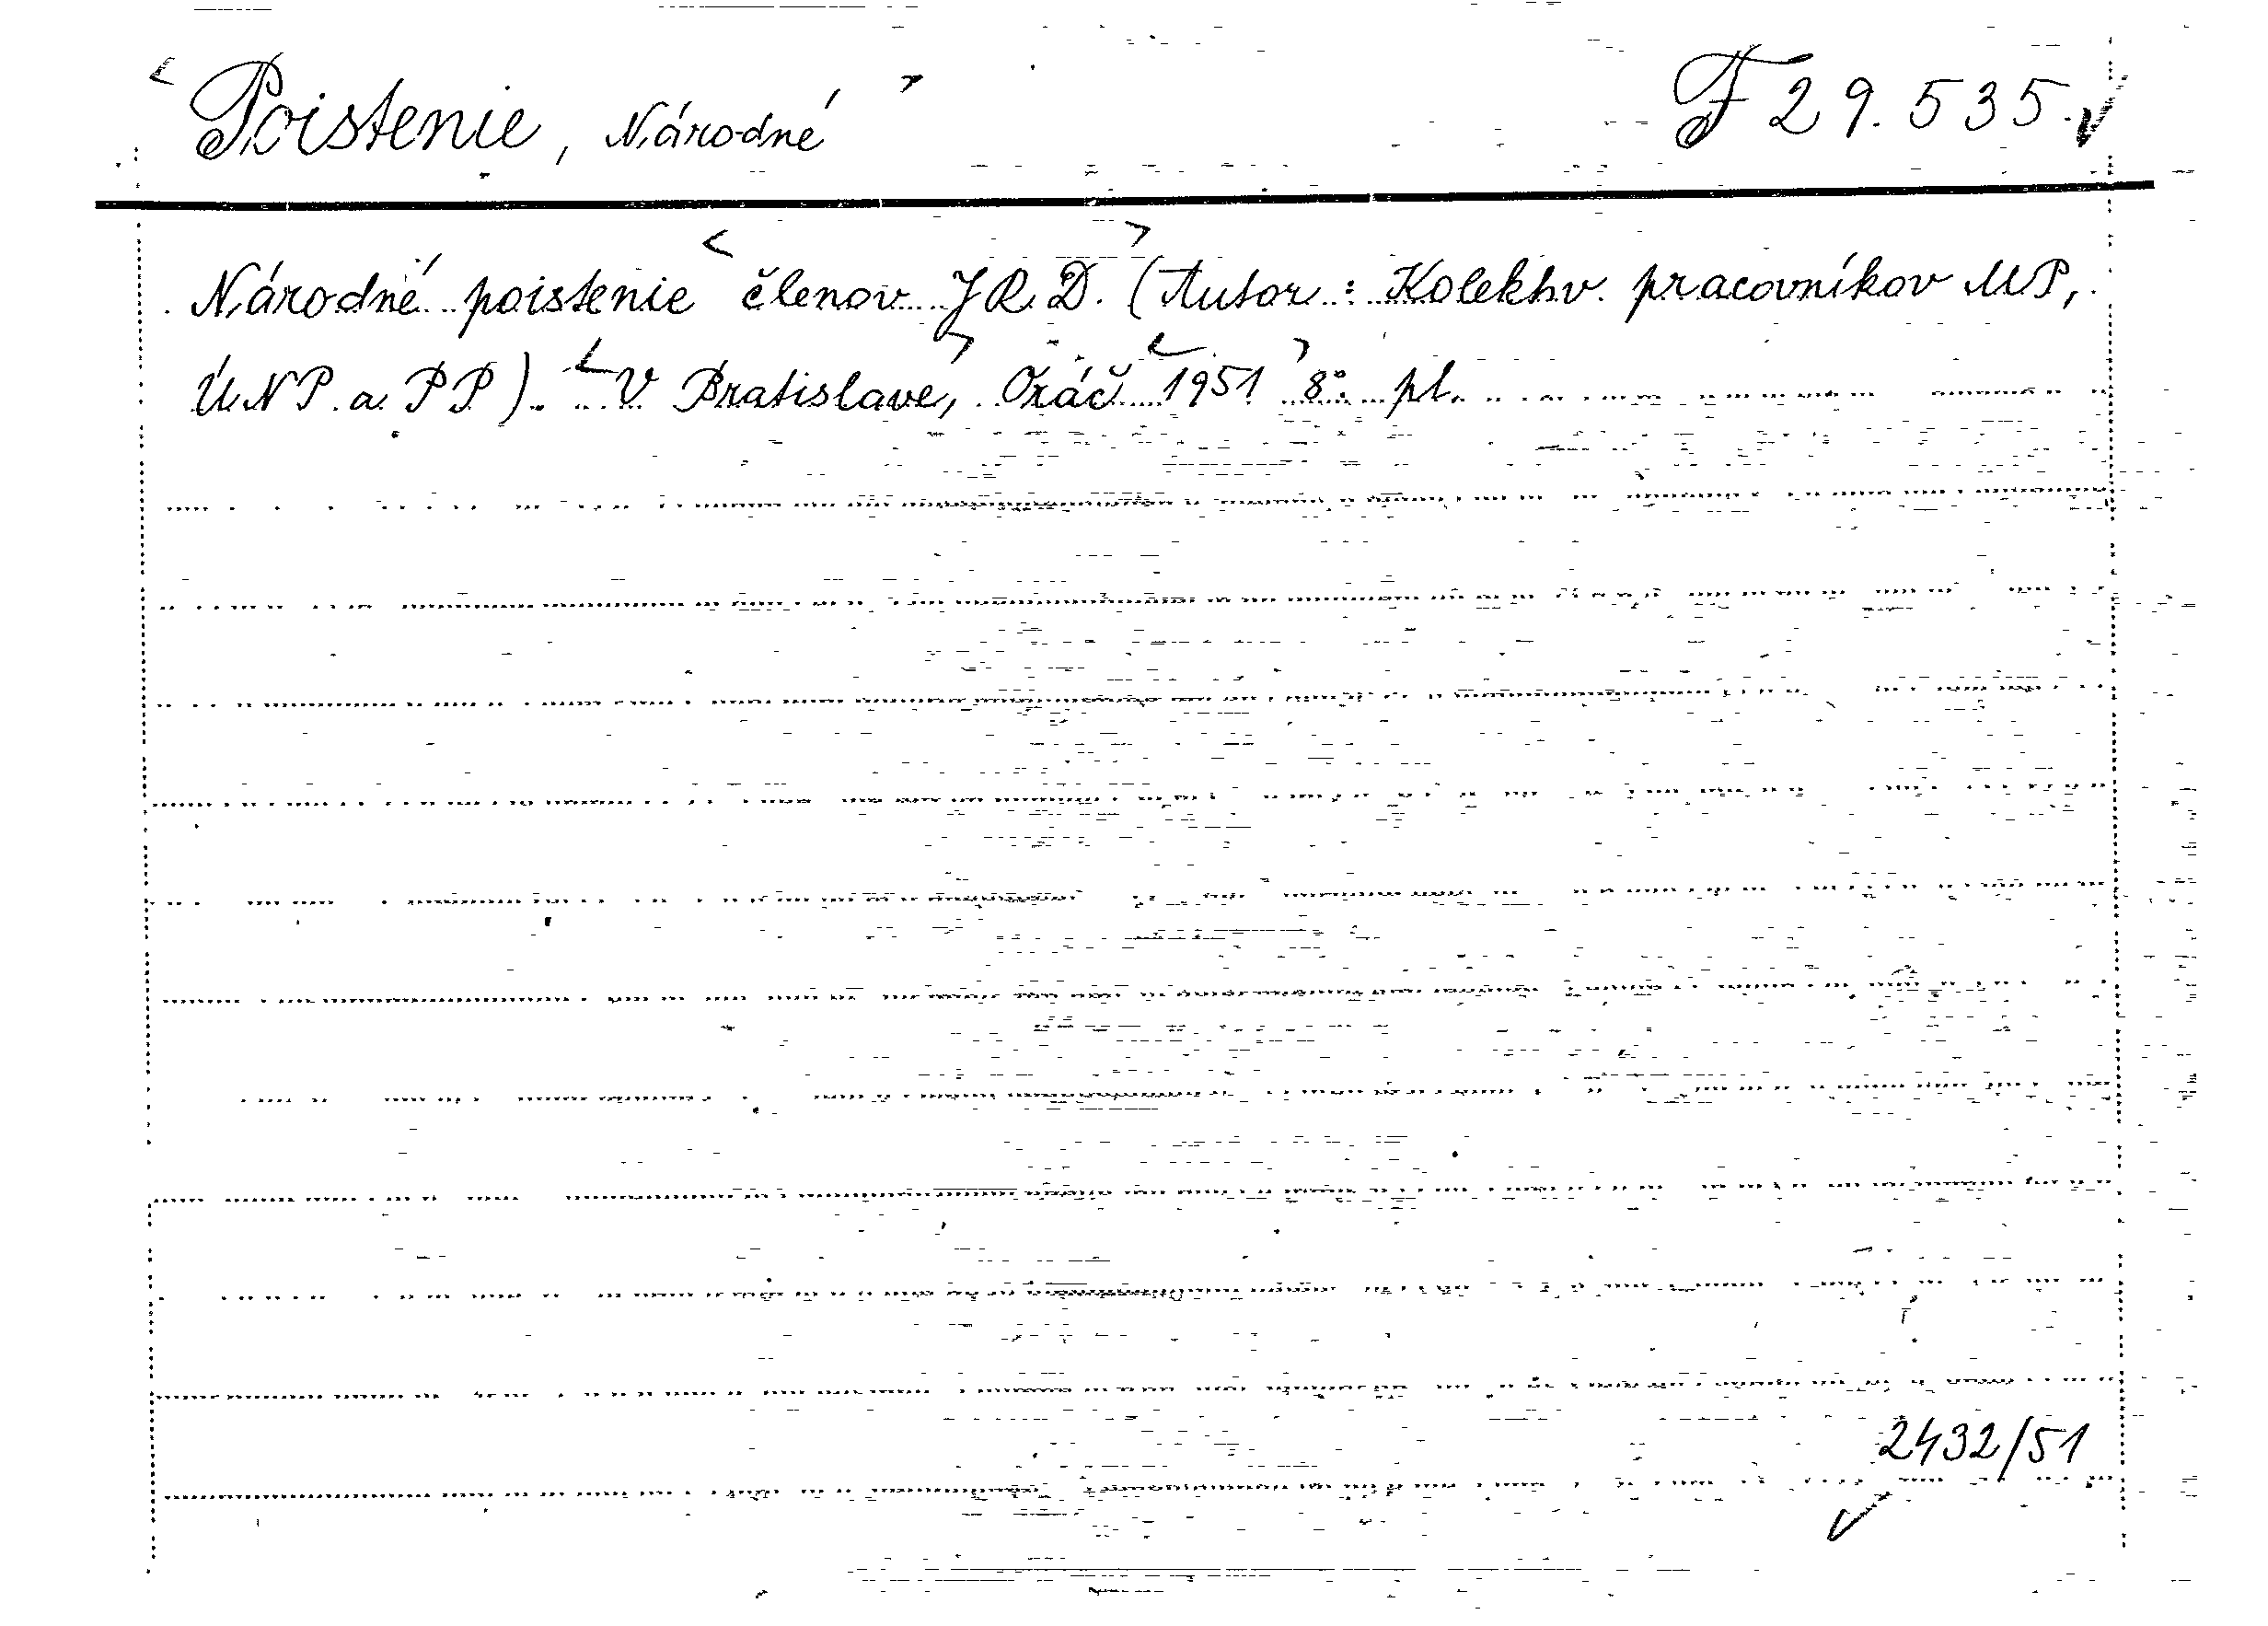 Poistenie, Národné F 29.535.
Národné poistenie členov JRD. (Autor: Kolektív. pracovníkov MP,
ÚNP a PP). V Bratislave, Oráč 1951 8° pl.
2432/51